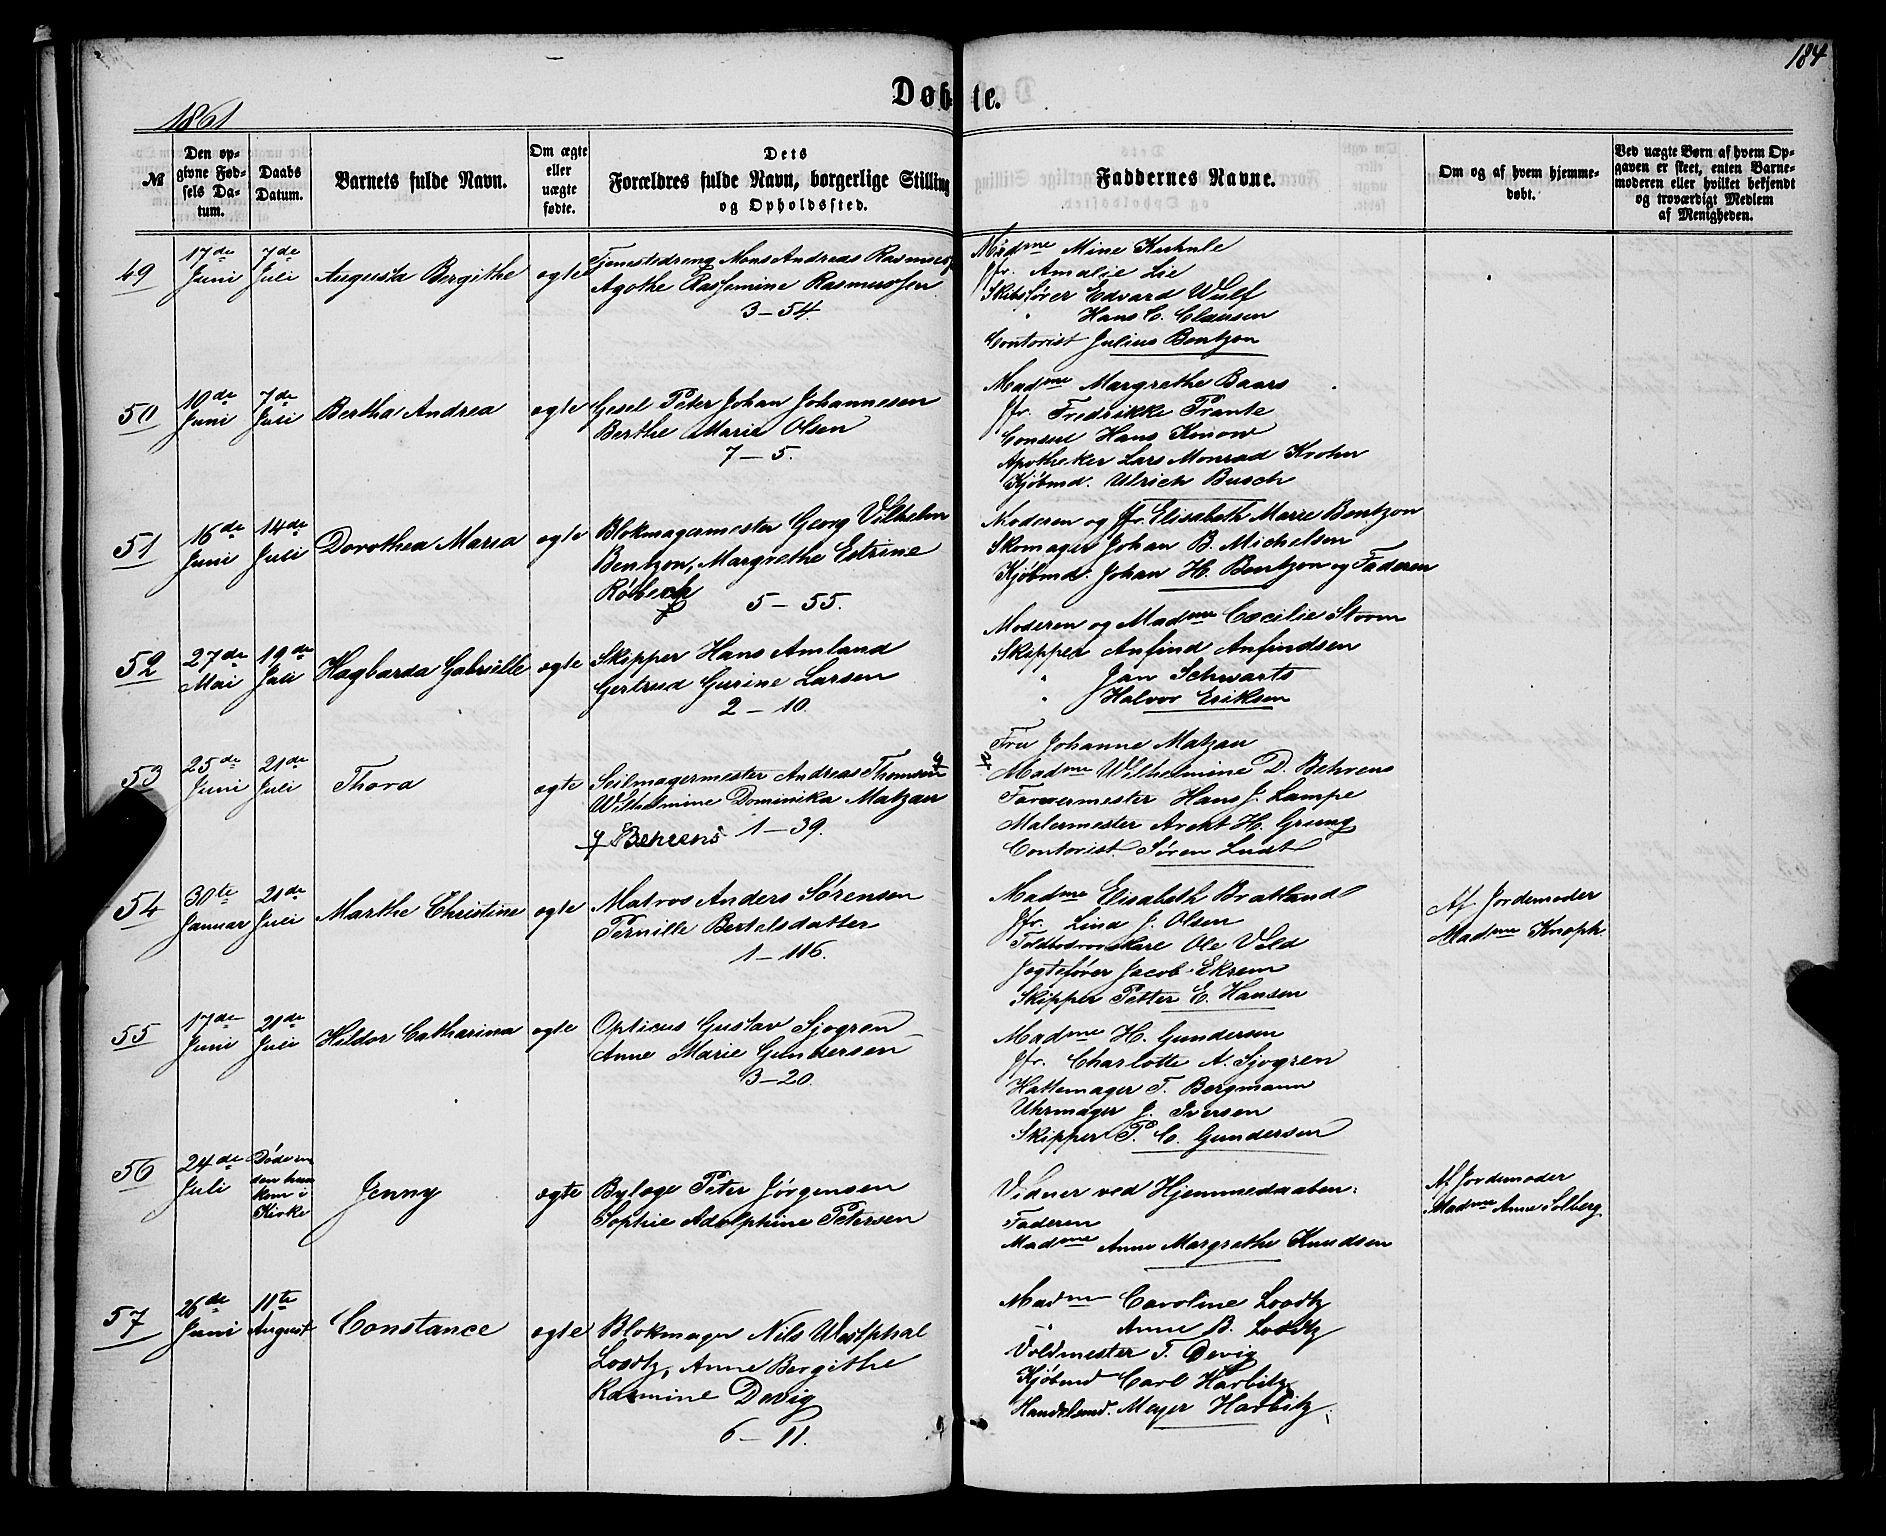 184
Døbte.
1861
№
Den op-
givne Fød-
sels Da-
tum.
Daabs
Datum.
Barnets fulde Navn.
Om ægte
eller
uægte
fødte.
Dets
Forældres fulde Navn, borgerlige Stilling
og Opholdssted.
Faddernes Navne.
Om og af hvem hjemme-
døbt.
Ved uægte Børn af hvem Op-
gaven er skeet, enten Barne-
moderen eller hvilket bekjendt
og troværdigt Medlem
af Menigheden.
49
17de
Juni
7de
Juli
Augusta Bergithe
ægte
Tjenestedreng Mons Andreas Rasmusen
Agathe Rasmine Rasmussen
3 – 54.
Madme Mine Kuhnle
Jfr. Amalie Lie
Skibsfører Edvard Wulf
" Hans C. Clausen
Contorist Julius Bentzon
50
10de
Juni
7de
Juli
Bertha Andrea
ægte
Gesel Peter Johan Johannesen
Berthe Marie Olsen
7 – 5.
Madme Margrethe Baars
Jfr. Fredrikke Prante
Consul Hans Krnow
Apotheker Lars Monrad Krohn
Kjøbmd. Ulrich Busch
51
16de
Juni
14de
Juli
Dorothea Maria
ægte
Blokmagermester Georg Vilhelm
Bentzon, Margrethe Estrine
Røbech
5 – 55.
Moderen og Jfr. Elisabeth Marie Bentzon
Skomager Johan B. Michelsen
Kjøbmd. Johan H. Bentzon og Faderen
52
27de
Mai
19de
Juli
Hagbarda Gabrielle
ægte
Skipper Hans Amland
Gertrud Gurine Larsen
2 – 10.
Moderen og Madme Cæcilie Storm
Skipper Anfind Anfindsen
" Jan Schwarts
" Halvor Eriksen
53
25de
Juni
21de
Juli
Thora
ægte
Seilmagermester Andreas Thomsen
Wilhelmine Dominika Matzau
Behrens 1 – 39.
Fru Johanne Matzau
Madme Wilhelmine D. Behrens
Farvermester Hans J. Lampe
Malermester Arent H. Grung
Contorist Søren Ludt
54
30te
Januar
21de
Juli
Marthe Christine
ægte
Matros Anders Sørensen
Pernille Bertelsdatter
1 – 116.
Madme Elisabeth Bratland
Jfr. Lina J. Olsen
Toldbodroerskarl Ole Veld
Jagtefører Jacob Ekrem
Skipper Petter E. Hansen
Af Jordemoder
Madme Knoph.
55
17de
Juni
21de
Juli
Hildor Catharina
ægte
Opticus Gustav Sjogren
Anne Marie Gundersen
3 – 20.
Madme H. Gundersen
Jfr. Charlotte A. Sjogren
Hattemager T. Bergmann
Uhrmager J. Iversen
Skipper P. C. Gundersen
56
24de
Juli
Døde in-
den hun
kom i
Kirke
Jenny
ægte
Bylæge Peter Jørgensen
Sophie Adolphine Petersen
Vidner ved Hjemmedaaben:
Faderen
Madme Anne Margrethe Knudsen
Af Jordemoder
Madme Anne Solberg.
57
26de
Juni
11te
August
Constance
ægte
Blokmager Nils Westphal
Loodtz, Anne Bergithe
Rasmine Devig
6 – 11.
Madme Caroline Loodtz
" Anne B. Loodtz
Voldmester T. Devig
Kjøbmd Carl Harbitz
Handelsmd. Meyer Harbitz